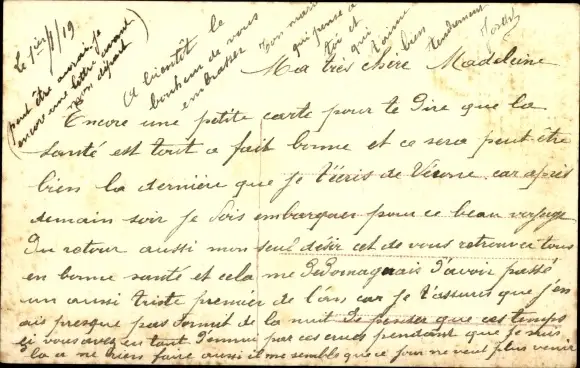 Le 1er/1/19
peut être aurai-je
encore une lettre avant
mon départ
A bientôt le
bonheur de vous
embrasser
Ton mari
qui pense à
toi et
qui t'aime
bien
tendrement
Ma très chère Madeleine
Encore une petite carte pour te dire que la
santé est tout a fait bonne et ce sera peut être
bien la dernière que je t'écris de Vérone car après
demain soir je dois embarquer pour ce beau voyage
Du retour aussi mon seul désir cet de vous retrouver tous
en bonne santé et cela me d'avoir passé
un aussi triste premier de l'an car je t'assures que j'en
ais presque pas dormit de la nuit de penser que ces temps
ci vous avez eu tant d'ennui par ces crues pendant que je suis
la a ne rien faire aussi il me sembls que ce jour ne veut plus venir